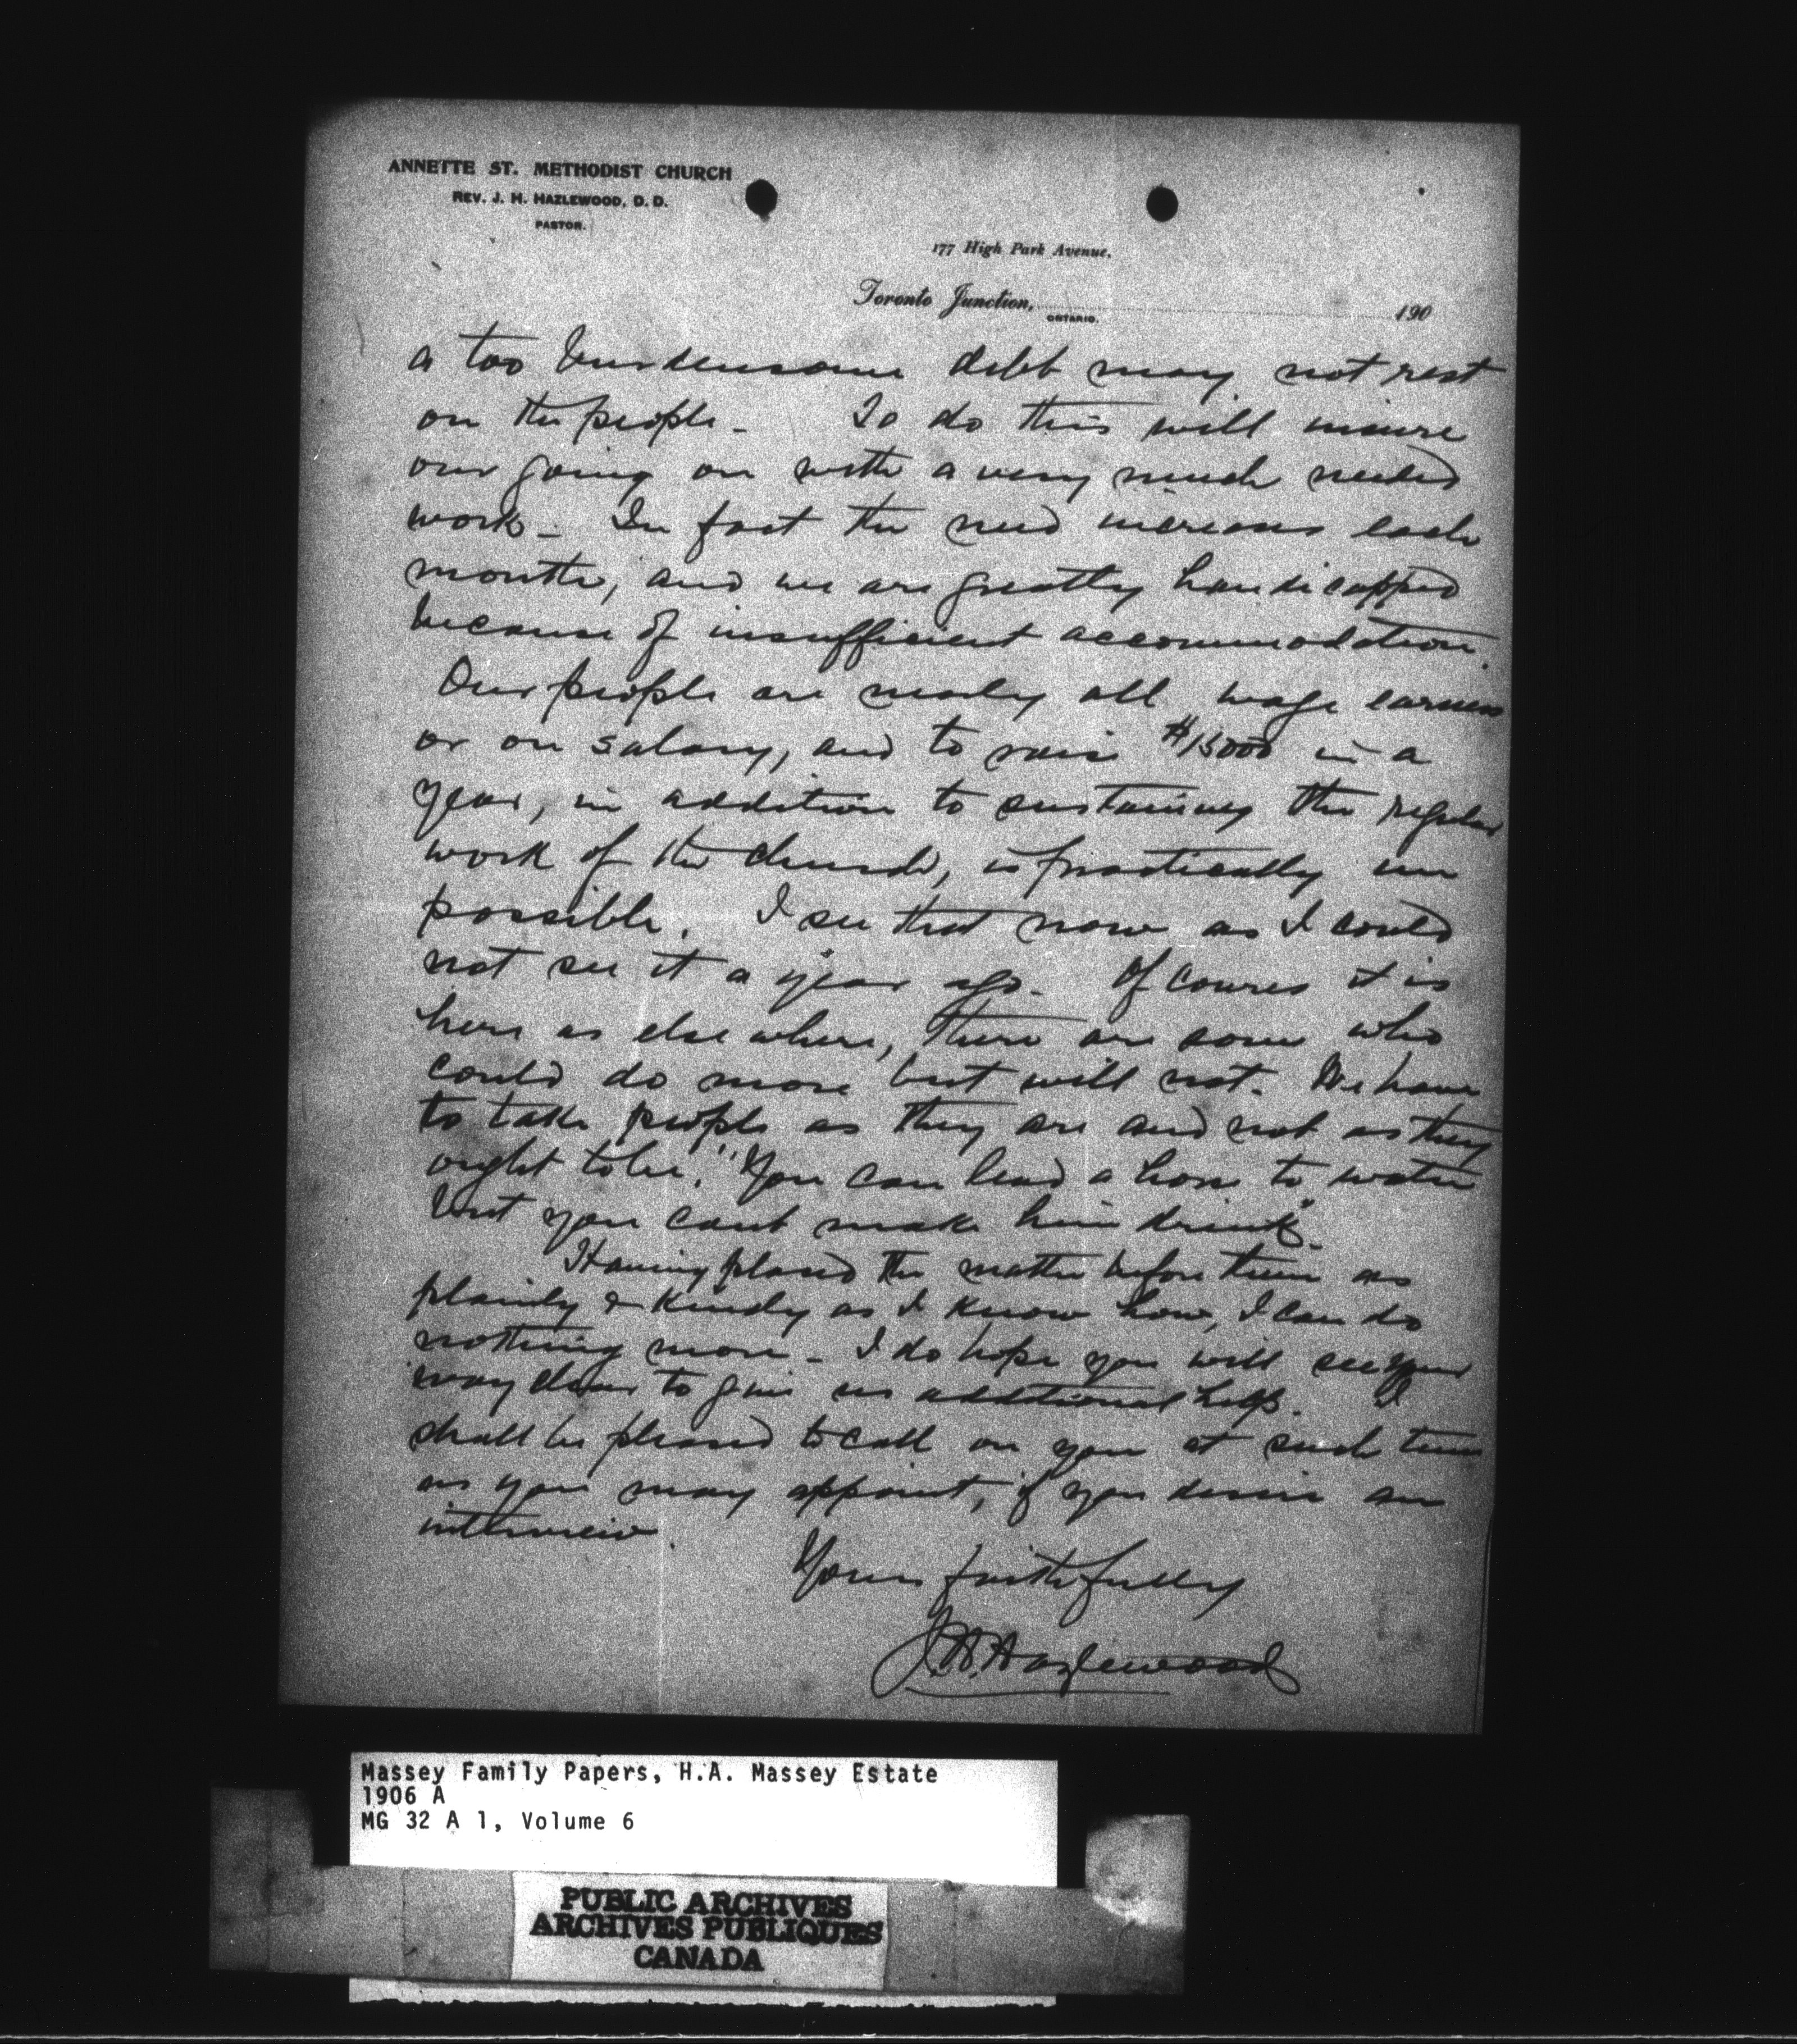 ANNETTE ST. METHODIST CHURCH
REV. J. H. HAZLEWOOD, D. D.
PASTOR.
177 High Park Avenue,
Toronto Junction, 190
ONTARIO.
a too burdensome debt may not rest
on the people - To do this will insure
our going on with a very much needed
work - In fact the need increases each
month, and we are greatly handicapped
because of insufficient accommodation.
Our people are nearly all wage earners
or on salary, and to raise $15000 in a
year, in addition to sustaining the regular
work of the church, is practically im
possible. I see that now as I could
not see it a year ago - Of course it is
here as else where, there are some who
could do more but will not. We have
to take people as they are and not as they
ought to be. "You can lead a horse to water
but you cant make him drink" -
Having placed the matter before them as
plainly & kindly as I know how, I can do
nothing more - I do hope you will see your
way clear to give us additional help. I
shall be pleased to call on you at such time
as you may appoint, if you desire an
interview.
Yours faithfully
J. H. Hazlewood
Massey Family Papers, H.A. Massey Estate
1906 A
MG 32 A 1, Volume 6
PUBLIC ARCHIVES
ARCHIVES PUBLIQUES
CANADA